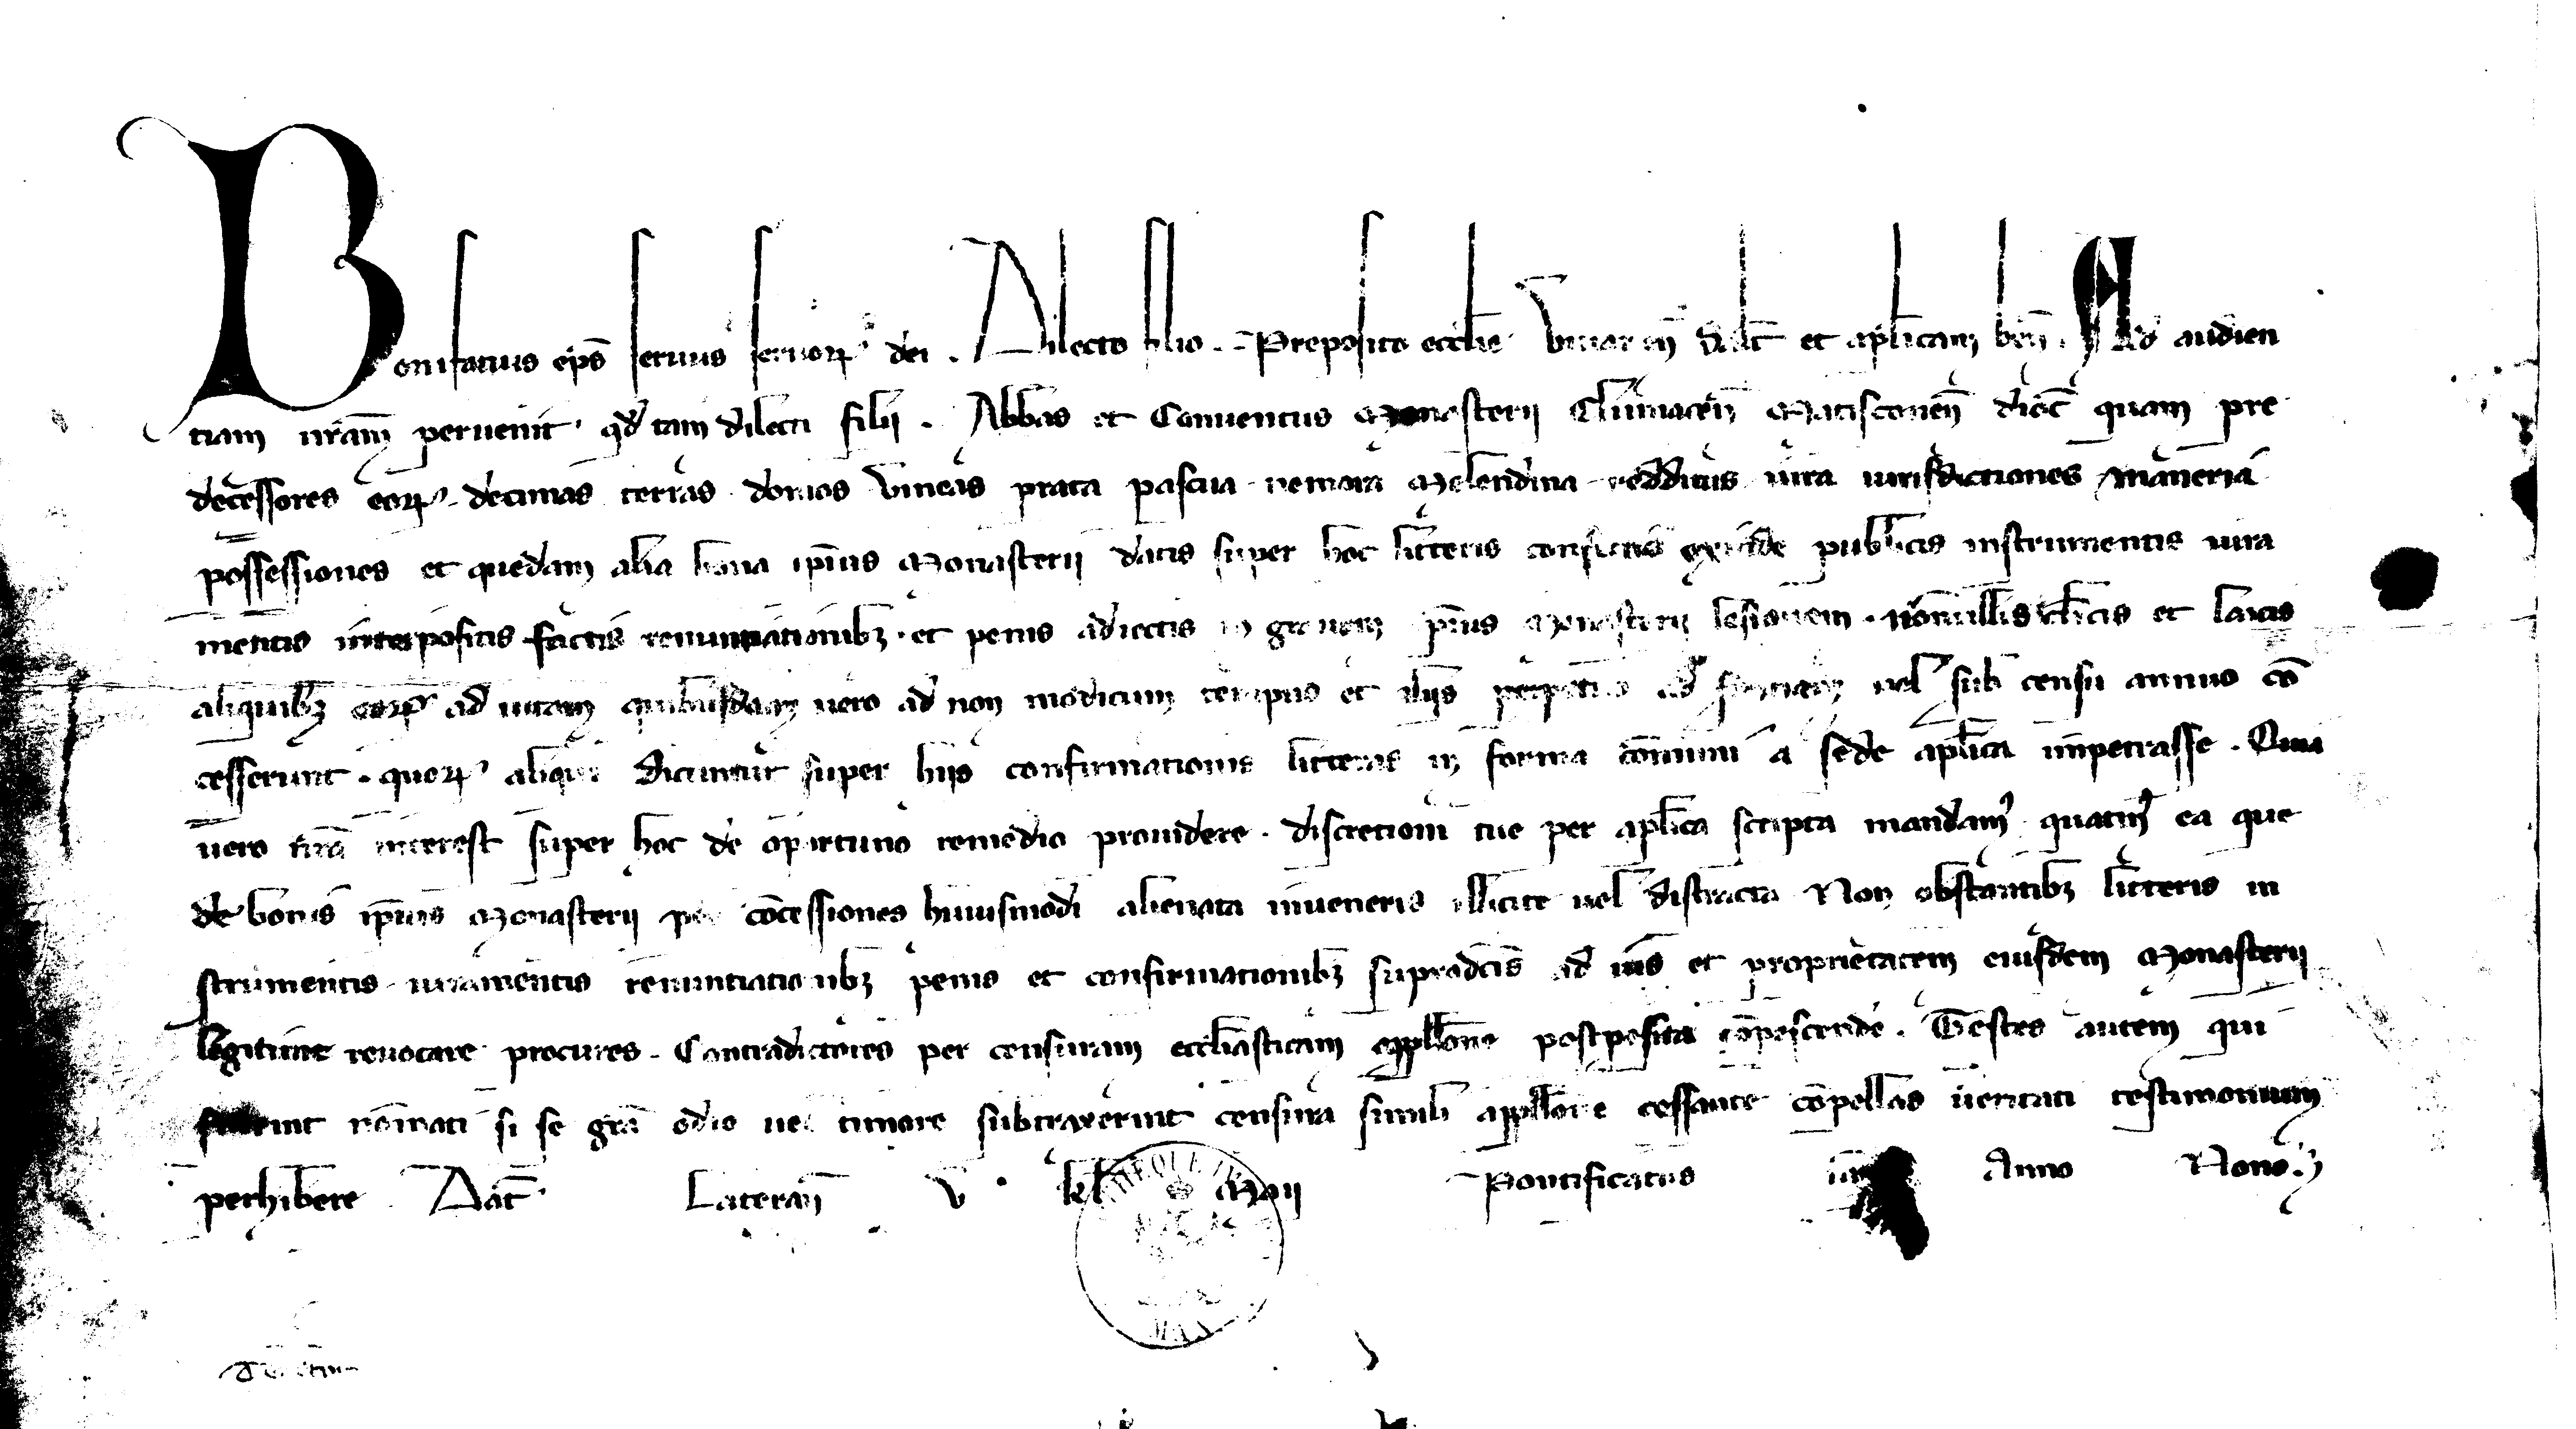 Bonifatius ep̄s seruus seruoꝝ dei . Dilecto filio . Preposito eccl̄ie Viuarieñ Sal̄t et apl̄icam beñ . Ad audien
tiam nr̄am peruenit qd̄ tam dilecti filii . Abbas et Conuentus Monasterii Cluniaceñ Matisconeñ dioc̄ quam pre
decessores eoꝝ decimas terras domos vineas prata pascua nemora Molendina redditus iura iurisdictiones maneria
possessiones et quedam alia bona ip̄ius Monasterii datis super hoc litteris confectis exinde publicis instrumentis iura
mentis interpositis factis renuntiationibꝫ et penis adiectis in grauem ip̄ius Monasterii lesionem nonnullis cl̄icis et laicis
aliquibꝫ eoꝝ ad uitam quibusdam uero ad non modicum tempus et aliis perpetuo ad firmam uel sub censu annuo co̅
cesserunt . quoꝝ aliqui dicuntur super hiis confirmationis litteras in forma co̅muni a sede apl̄ica impetrasse . Quia
uero nr̄a interest super hoc de oportuno remedio prouidere . discretioni tue per apl̄ica scripta mandamꝰ quatinꝰ ea que
de bonis ip̄ius Monasterii per co̅cessiones huiusmodi alienata inueneris illicite uel distracta Non obstantibꝫ litteris in
strumentis iuramentis renuntiationibꝫ penis et confirmationibꝫ supradc̄is ad ius et proprietatem eiusdem Monasterii
legitime reuocare procures . Contradictores per censuram eccl̄iasticam appell̄one postposita co̅pescendo . Testes autem qui
fuerint no̅iati si se gr̄a odio uel timore subtraxerint censura simili appell̄one cessante co̅pellas ueritati testimonium
perhibere Dat̄ Laterañ V kl̄ Maii Pontificatus nr̄i Anno Nono